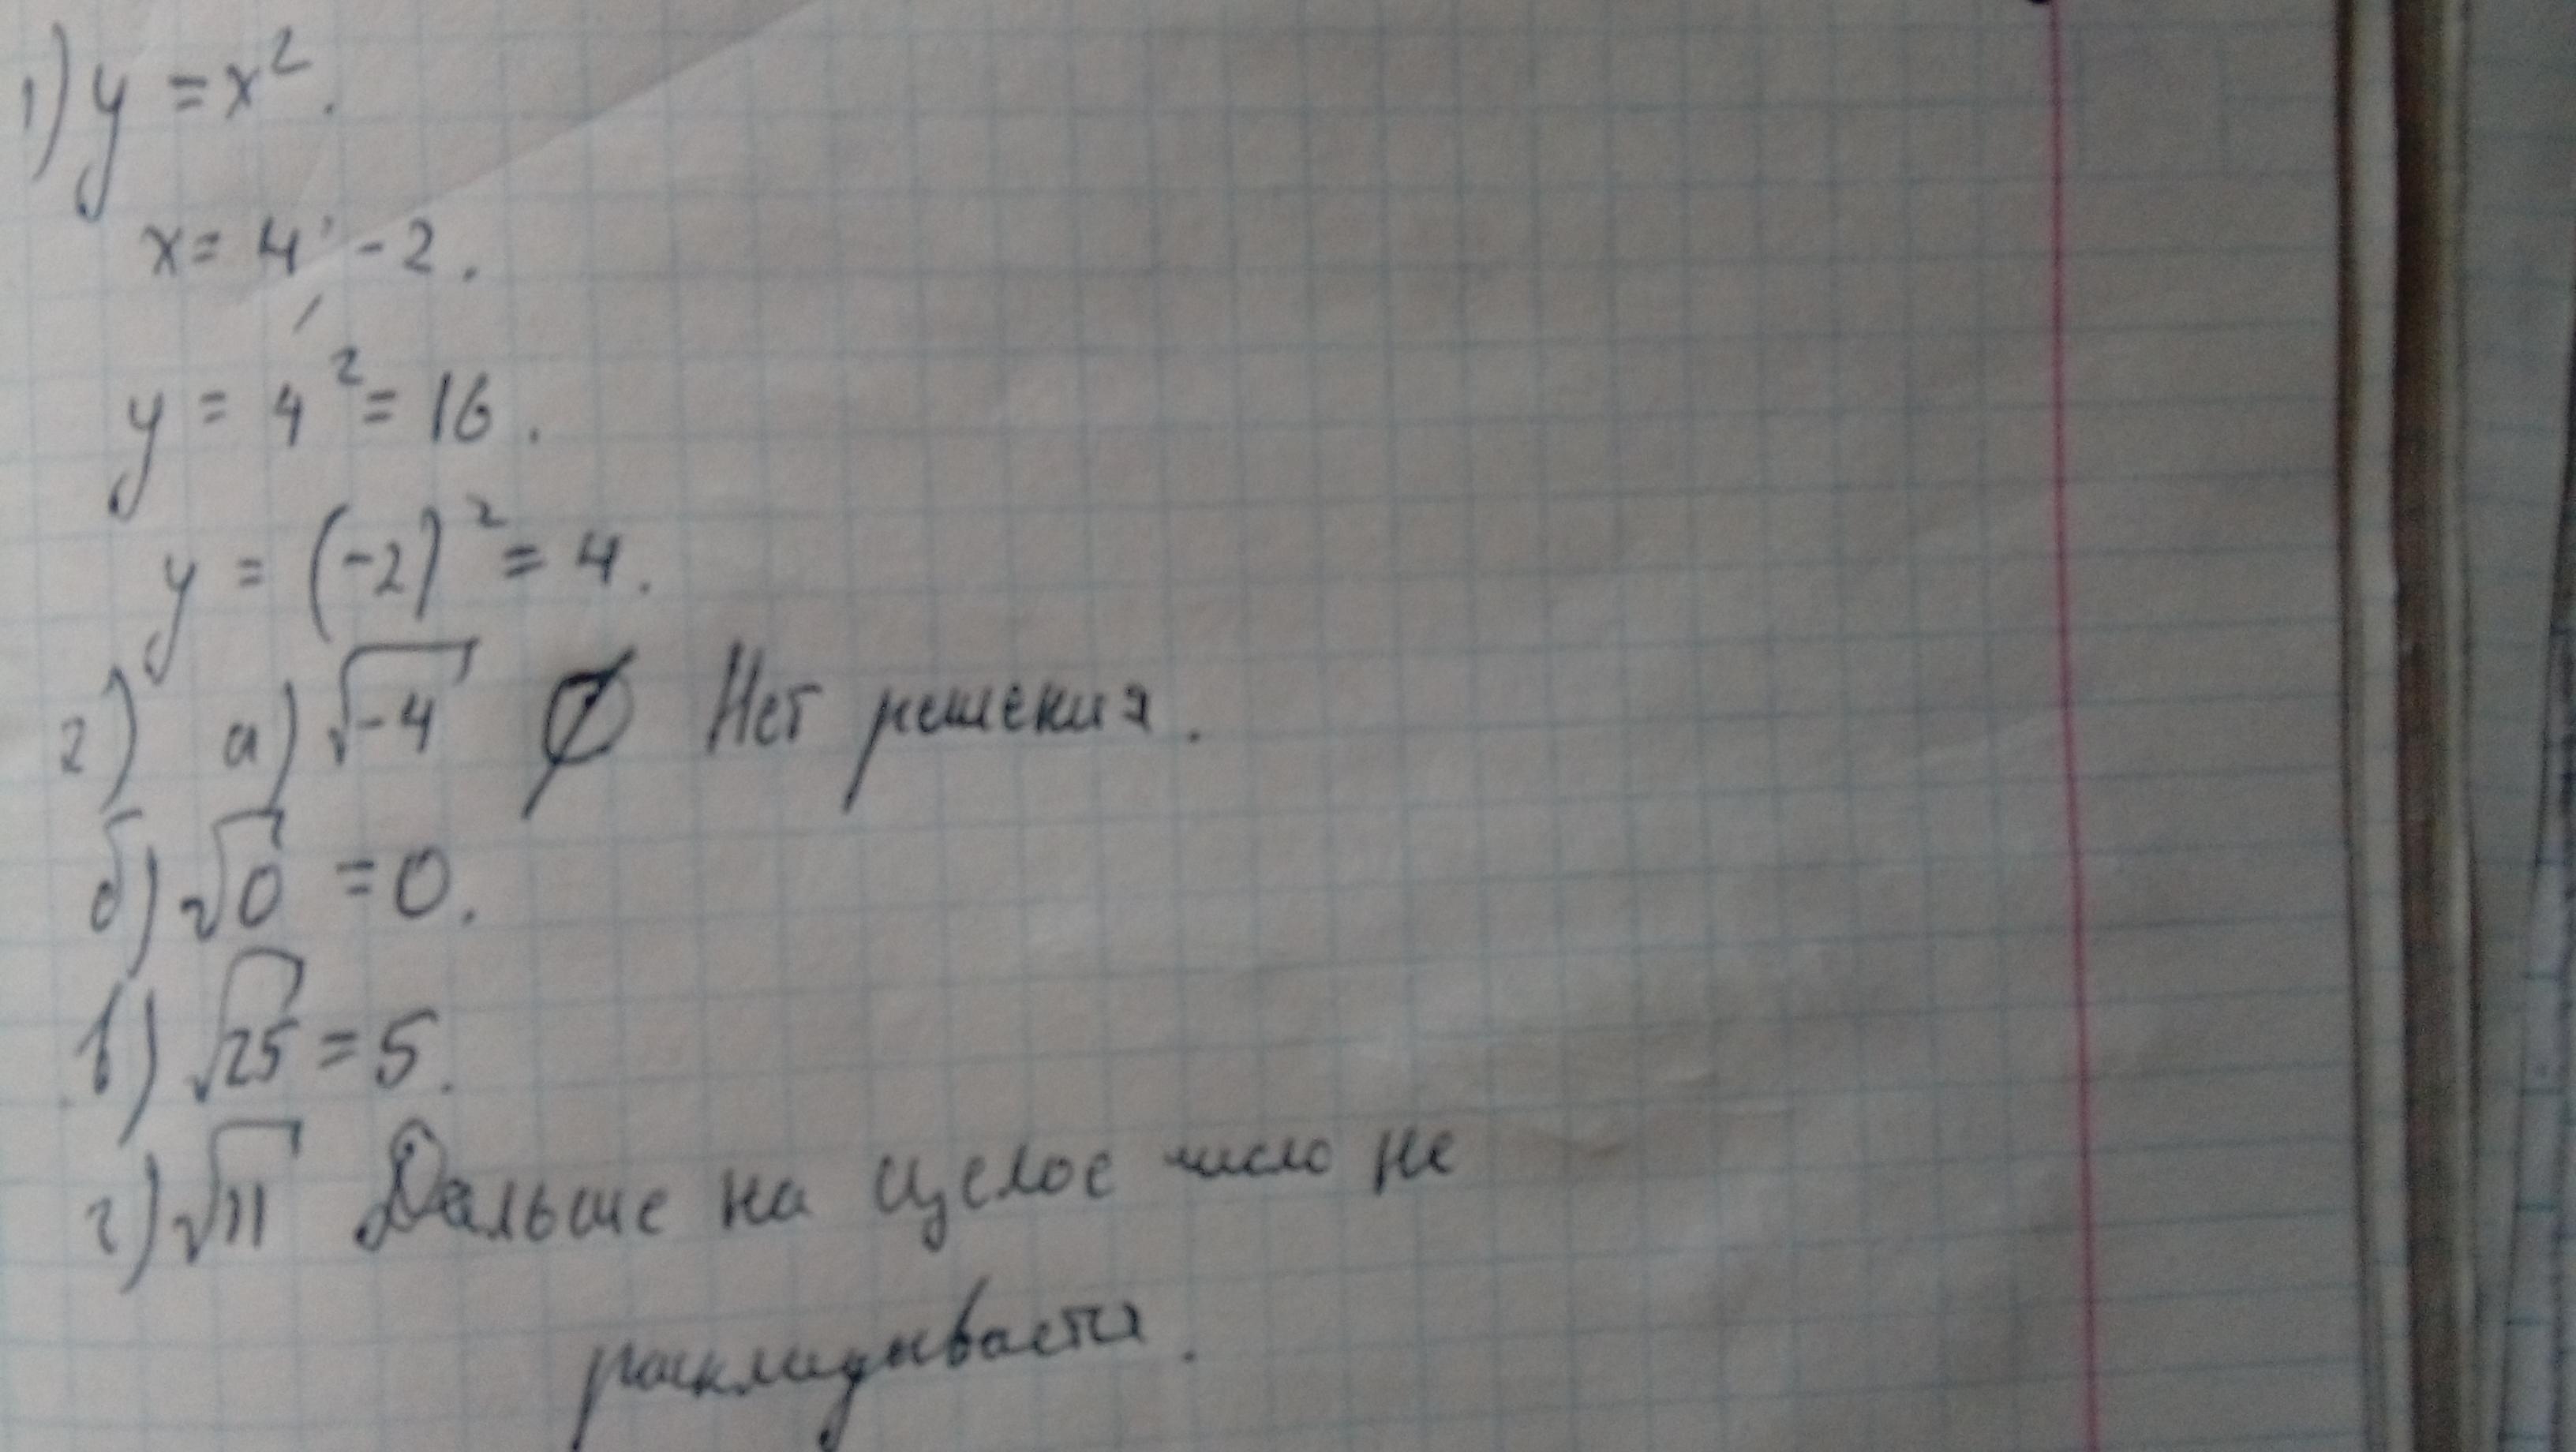 1) y = x².
x = 4; -2.
y = 4² = 16.
y = (-2)² = 4.
2) а) √-4 ∅ Нет решения.
б) √0 = 0.
в) √25 = 5.
г) √11 Дальше на целое число не
раскладывается.